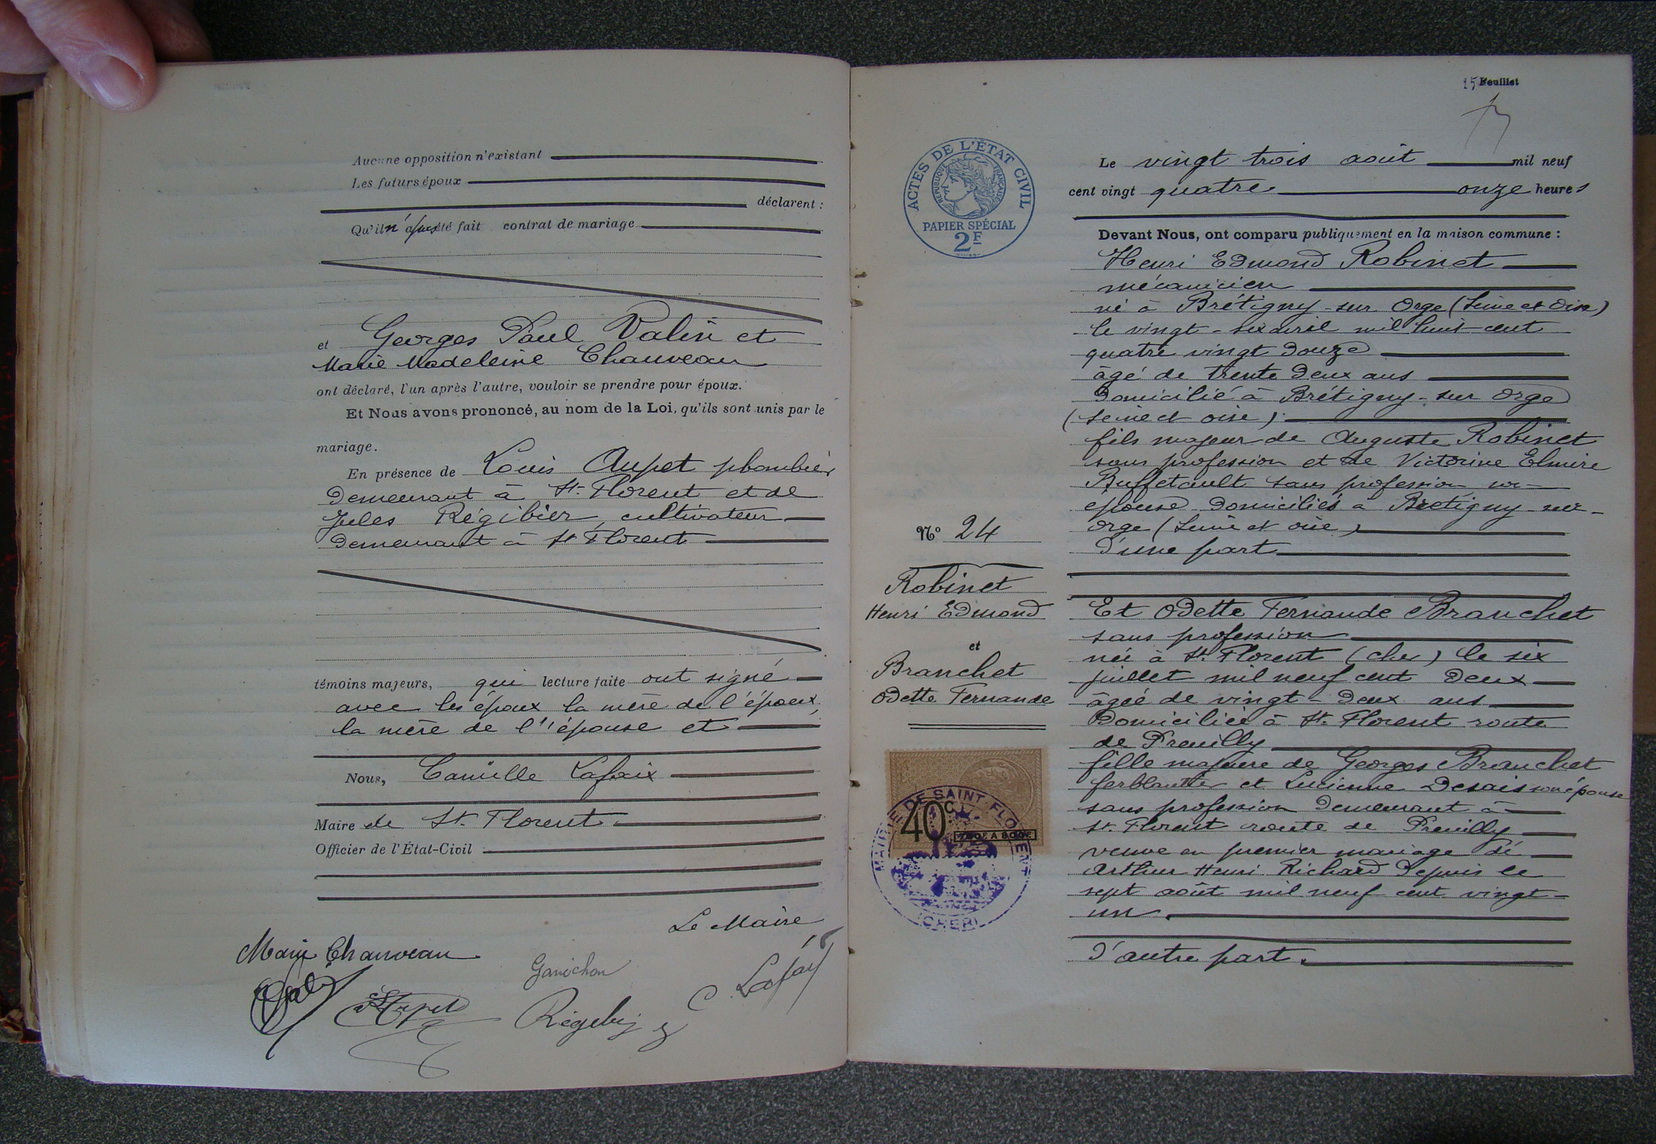 Aucune opposition n'existant
Les futurs époux
déclarent :
Qu'il n'a pas été fait contrat de mariage
et Georges Paul Valin et
Marie Madeleine Chauveau
ont déclaré, l'un après l'autre, vouloir se prendre pour époux.
Et Nous avons prononcé, au nom de la Loi, qu'ils sont unis par le
mariage.
En présence de Louis Aupet plombier
demeurant à St Florent et de
Jules Régibier cultivateur
demeurant à St Florent
témoins majeurs, qui lecture faite ont signé
avec les époux la mère de l'époux,
la mère de l'épouse et
Nous, Camille Lafaix
Maire de St. Florent
Officier de l'État-Civil
Le Maire
Marie Chauveau
Ganichon
C Lafaix
15 Feuillet
ACTES DE L'ÉTAT CIVIL
RÉPUBLIQUE FRANÇAISE
PAPIER SPÉCIAL
2F
Le vingt trois août mil neuf
cent vingt quatre onze heures
Devant Nous, ont comparu publiquement en la maison commune :
Henri Edmond Robinet
mécanicien
né à Brétigny-sur Orge (Seine et Oise)
le vingt-six avril mil huit cent
quatre vingt douze
âgé de trente deux ans
domicilié à Brétigny-sur Orge
(Seine et Oise)
fils majeur de Auguste Robinet
sans profession et de Victorine Elmire
Buffetault sans profession son
épouse domiciliés à Brétigny-sur-
Orge (Seine et Oise)
d'une part
No 24
Robinet
Henri Edmond
et
Branchet
Odette Fernande
Et Odette Fernande Branchet
sans profession
née à St. Florent (Cher) le six
juillet mil neuf cent deux
âgée de vingt-deux ans
domiciliée à St. Florent route
de Preuilly
fille majeure de Georges Branchet
ferblantier et Lucienne Desais son épouse
sans profession demeurant à
St. Florent route de Preuilly
veuve en premier mariage de
Arthur Henri Richard depuis le
sept août mil neuf cent vingt-
un
d'autre part.
40c
MAIRIE DE SAINT FLORENT
(CHER)